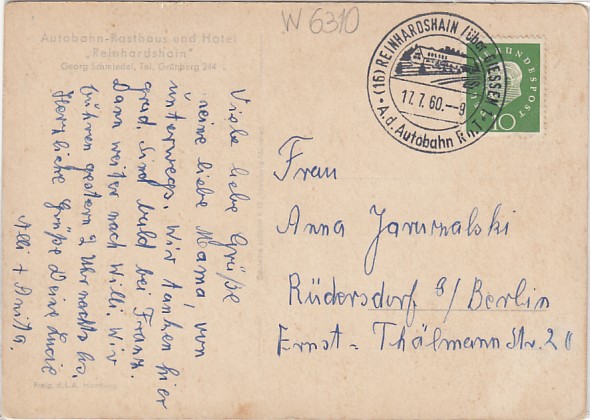 W 6310
Autobahn-Rasthaus und Hotel
„Reinhardshain"
Georg Schmiedel, Tel. Grünberg 244
(16) REINHARDSHAIN (über GIESSEN
17.7.60.--9
A.d. Autobahn
BUNDESPOST
10
Viele liebe Grüße
meine liebe Mama, von
unterwegs. Wir tanken hier
grad, sind bald bei Franz.
Dann weiter nach Willi. Wir
fuhren gestern 2 Uhr nachts los.
Herzliche Grüße Deine Lucie
Alli + Anita.
Frau
Anna Jarurnalski
Rüdersdorf b/Berlin
Ernst-Thälmann Str. 20